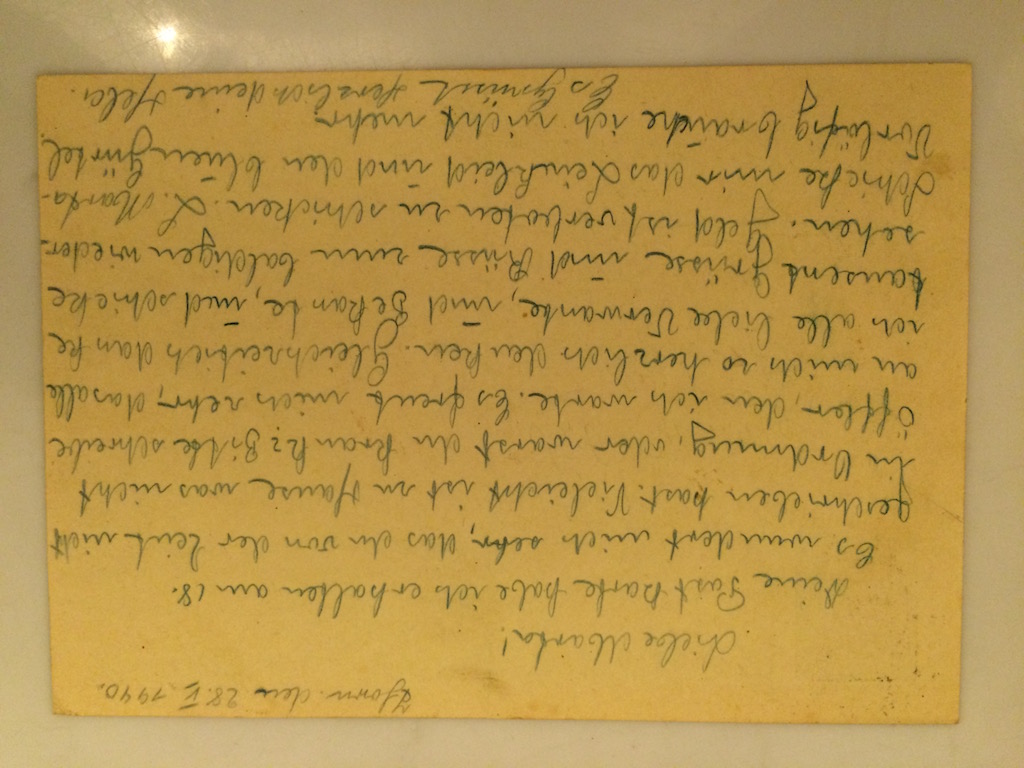 Thorn den 28.V.1940.
Liebe Marta!
Deine Post karte habe ich erhalten am 18.
Es wundert mich sehr, das du von der Zeit nicht
geschrieben hast. Vieleicht ist zu Hause was nicht
in Ordnung, oder warst du krank? Bitte schreibe
öffter, den ich warte. Es freut mich sehr, das alle
an mich so herzlich denken. Gleichzeitich danke
ich alle liebe Verwante, und Bekante, und schicke
tausent Grüsse und Küsse zum baldigen wieder-
sehen. Geld ist verboten zu schicken. L. Marta.
Schicke mir das Leinkleid und den blauen Gürtel
Vorläfig brauche ich nicht mehr.
Es Grüsst Herzlich deine Hela.